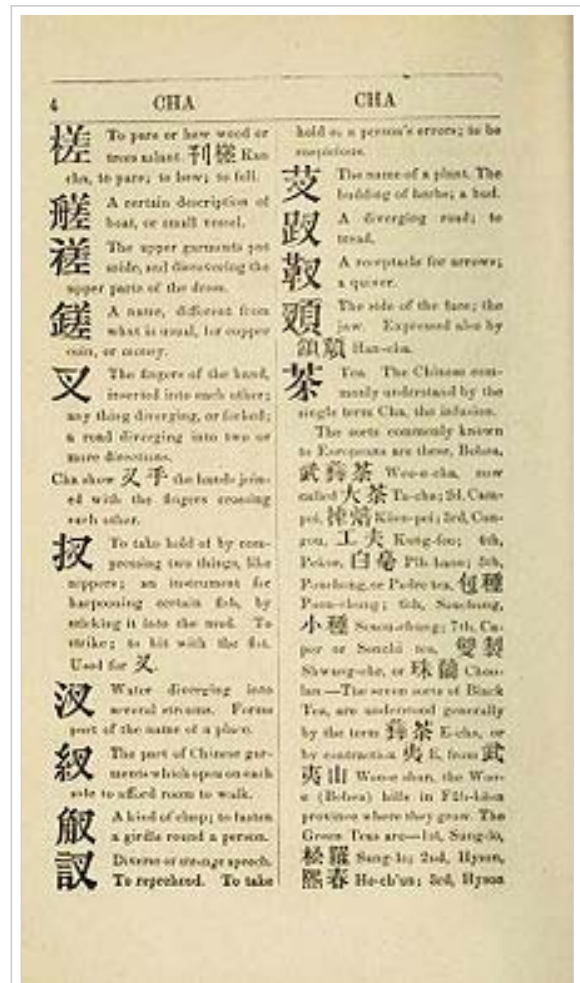 4 CHA CHA
槎 To pare or hew wood or
trees aslant. 刊槎 Kan
cha, to pare; to hew; to fell.
艖 A certain description of
boat, or small vessel.
The upper garments put
aside, and discovering the
upper parts of the dress.
鎈 A name, different from
what is usual, for copper
coin, or money.
叉 The fingers of the hand,
inserted into each other;
any thing diverging, or forked;
a road diverging into two or
more directions.
Cha show 叉手 the hands join-
ed with the fingers crossing
each other.
扠 To take hold of by com-
pressing two things, like
nippers; an instrument for
harpooning certain fish, by
sticking it into the mud. To
strike; to hit with the fist.
Used for 叉.
汊 Water diverging into
several streams. Forms
part of the name of a place.
衩 The part of Chinese gar-
ments which open on each
side to afford room to walk.
A kind of clasp; to fasten
a girdle round a person.
訍 Diverse or strange speech.
To reprehend. To take
hold of a person's errors; to be
suspicious.
芆 The name of a plant. The
budding of herbs; a bud.
䟕 A diverging road; to
tread.
靫 A receptacle for arrows;
a quiver.
The side of the face; the
jaw. Expressed also by
Han-cha.
茶 Tea. The Chinese com-
monly understand by the
single term Cha, the infusion.
The sorts commonly known
to Europeans are these, Bohea,
武彝茶 Woo-e-cha, now
called 大茶 Ta-cha; 2d, Cam-
poi, 揀焙 Këen-pei; 3rd, Con-
gou, 工夫 Kung-foo; 4th,
Pekoe, 白毫 Pih-haou; 5th,
Pouchong, or Padre tea, 包種
Paou-chung; 6th, Souchong,
小種 Seaou-chung; 7th, Ca-
per or Sonchi tea, 雙製
Shwang-che, or 珠蘭 Choo-
lan—The seven sorts of Black
Tea, are understood generally
by the term 彝茶 E-cha, or
by contraction 夷 E, from 武
夷山 Woo-e shan, the Woo-
e (Bohea) hills in Füh-këen
province where they grow. The
Green Teas are—1st, Sung-lo,
松羅 Sung-lo; 2nd, Hyson,
熙春 He-ch'un; 3rd, Hyson